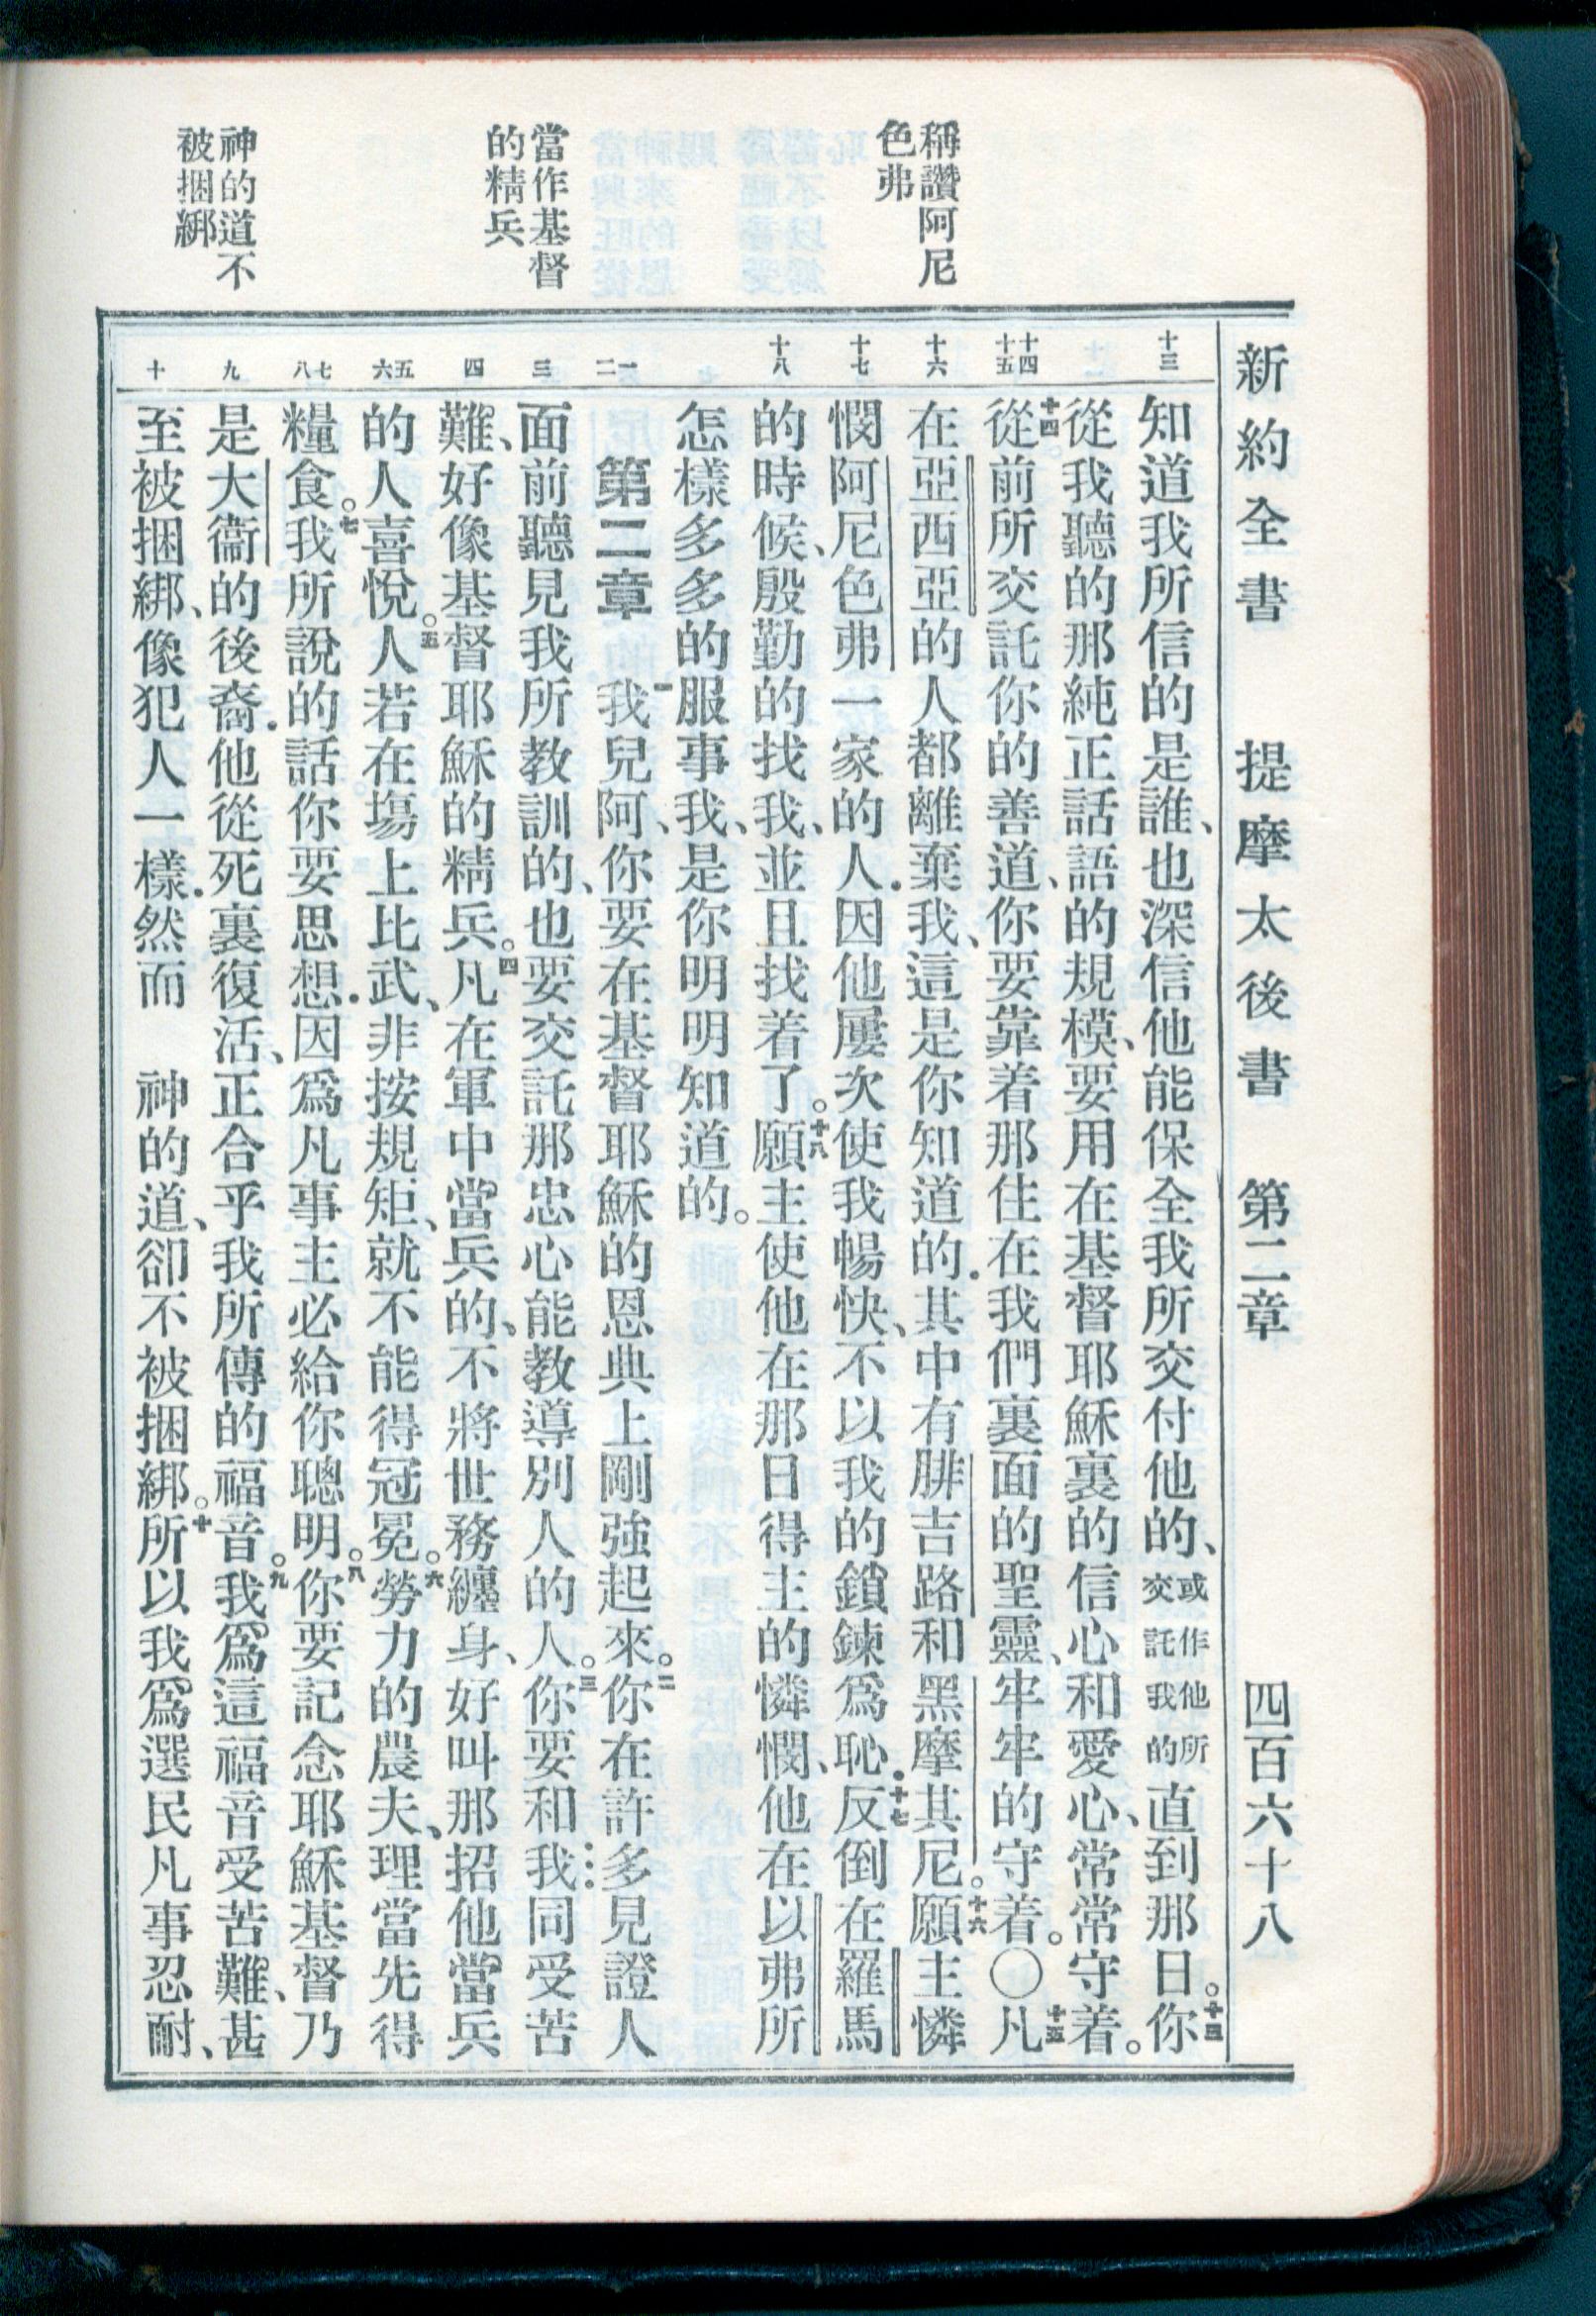 新約全書　提摩太後書　第二章　四百六十八
稱讚阿尼
色弗
當作基督
的精兵
神的道不
被捆綁
十三
十四
十五
十六
十七
十八
一
二
三
四
五
六
七
八
九
十
知道我所信的是誰、也深信他能保全我所交付他的、或作他所交託我的直到那日。十三你
從我聽的那純正話語的規模、要用在基督耶穌裏的信心和愛心、常常守着。
十四從前所交託你的善道、你要靠着那住在我們裏面的聖靈、牢牢的守着。〇十五凡
在亞西亞的人都離棄我、這是你知道的．其中有腓吉路和黑摩其尼。十六願主憐
憫阿尼色弗一家的人．因他屢次使我暢快、不以我的鎖鍊爲恥．十七反倒在羅馬
的時候、殷勤的找我、並且找着了。十八願主使他在那日得主的憐憫、他在以弗所
怎樣多多的服事我、是你明明知道的。
第二章　一我兒阿、你要在基督耶穌的恩典上剛強起來。二你在許多見證人
面前聽見我所教訓的、也要交託那忠心能教導別人的人。三你要和我同受苦
難、好像基督耶穌的精兵。四凡在軍中當兵的、不將世務纏身、好叫那招他當兵
的人喜悅。五人若在塲上比武、非按規矩、就不能得冠冕。六勞力的農夫、理當先得
糧食。七我所說的話你要思想．因爲凡事主必給你聰明。八你要記念耶穌基督乃
是大衞的後裔．他從死裏復活、正合乎我所傳的福音。九我爲這福音受苦難、甚
至被捆綁、像犯人一樣．然而　神的道、卻不被捆綁。十所以我爲選民凡事忍耐、